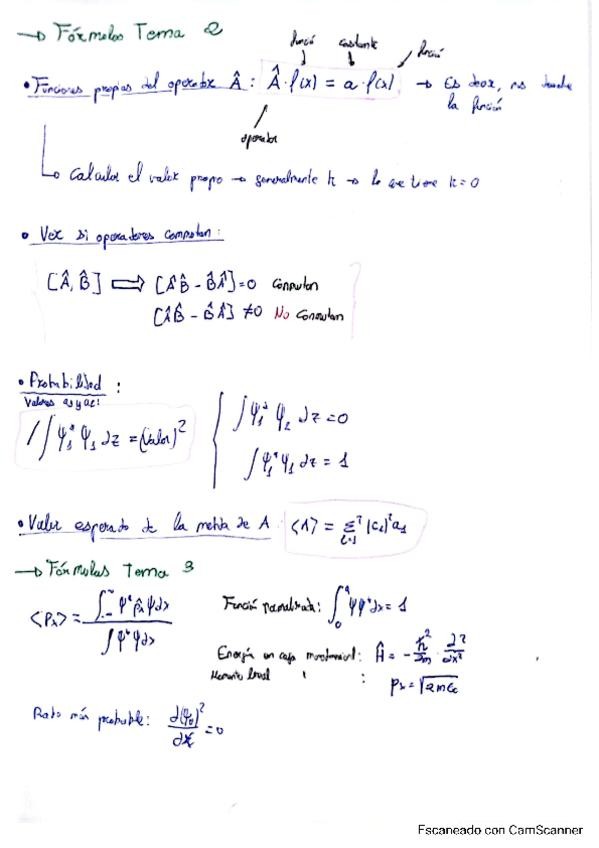 → Fórmulas Tema 2
función constante función
• Funciones propias del operador Â : Â · f(x) = a · f(x) → Es decir, nos devuelve la función
operador
↳ Calcular el valor propio → generalmente k → lo que tiene k=0
• Ver si operadores conmutan:
[Â, B̂] ⟹ [ÂB̂ - B̂Â] = 0 Conmutan
[ÂB̂ - B̂Â] ≠ 0 No Conmutan
• Probabilidad :
Valores a₁ y a₂:
/∫ψ₁* ψ₁ dz = (Valor)²
∫ψ₁* ψ₂ dz = 0
∫ψ₁* ψ₁ dz = 1
• Valor esperado de la medida de A
⟨A⟩ = Σ |c₁|² a₁
→ Fórmulas Tema 3
⟨Pₓ⟩ = ∫ψ* p̂ₓ ψ dx / ∫ψ* ψ dx
Función normalizada: ∫₀ᵃ ψψ* dx = 1
Energía en caja monodimensional: Ĥ = - ħ²/2m · d²/dx²
Momento lineal : pₓ = √2mE
Radio más probable: d(ψ₀)²/dx = 0
Escaneado con CamScanner